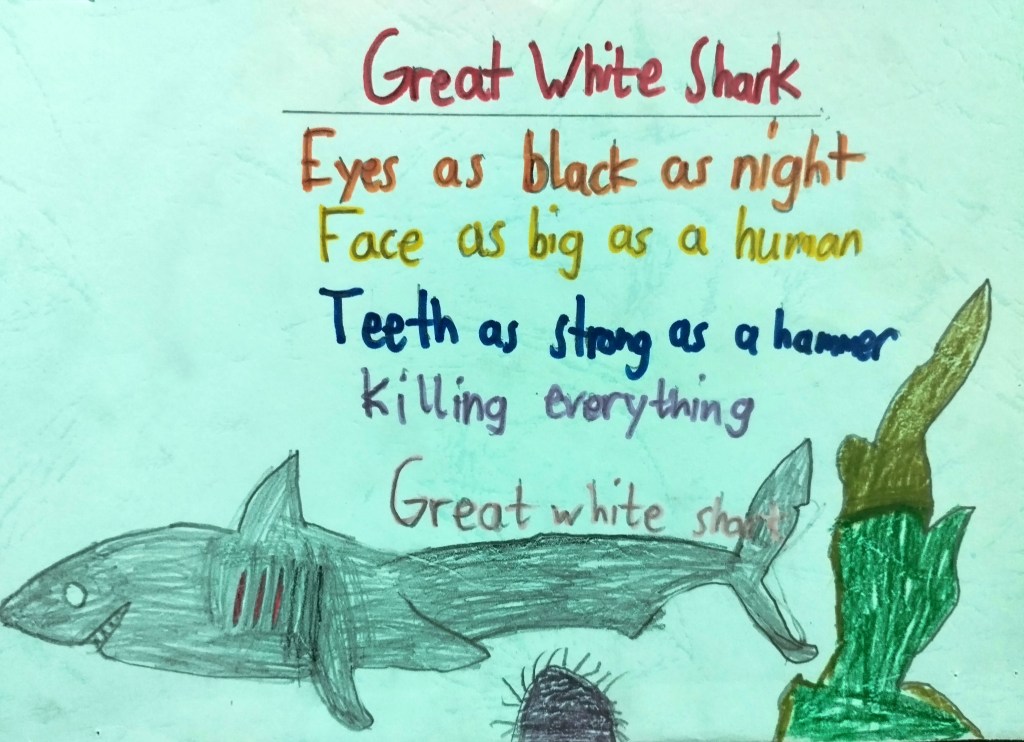 Great White Shark
Eyes as black as night
Face as big as a human
Teeth as strong as a hammer
Killing everything
Great white shark